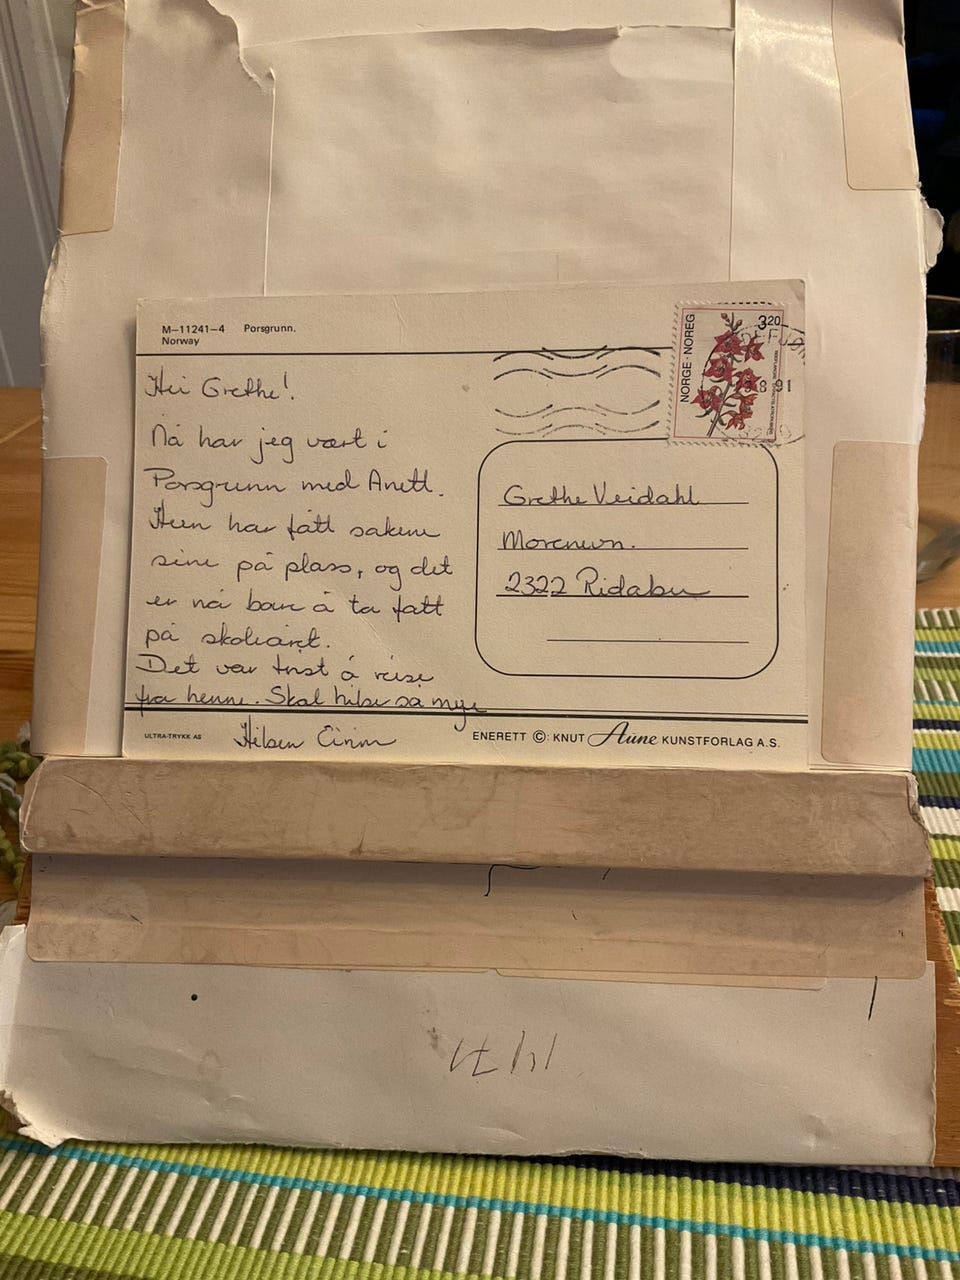 M–11241–4 Porsgrunn.
Norway
NORGE · NOREG
320
8 91
Hei Grethe!
Nå har jeg vært i
Porsgrunn med Anett.
Hun har fått sakene
sine på plass, og det
er nå bare å ta fatt
på skoleåret.
Det var trist å reise
fra henne. Skal hilse så mye
Hilsen
Grethe Veidahl
2322 Ridabu
ULTRA-TRYKK AS
ENERETT ©: KNUT Aune KUNSTFORLAG A.S.